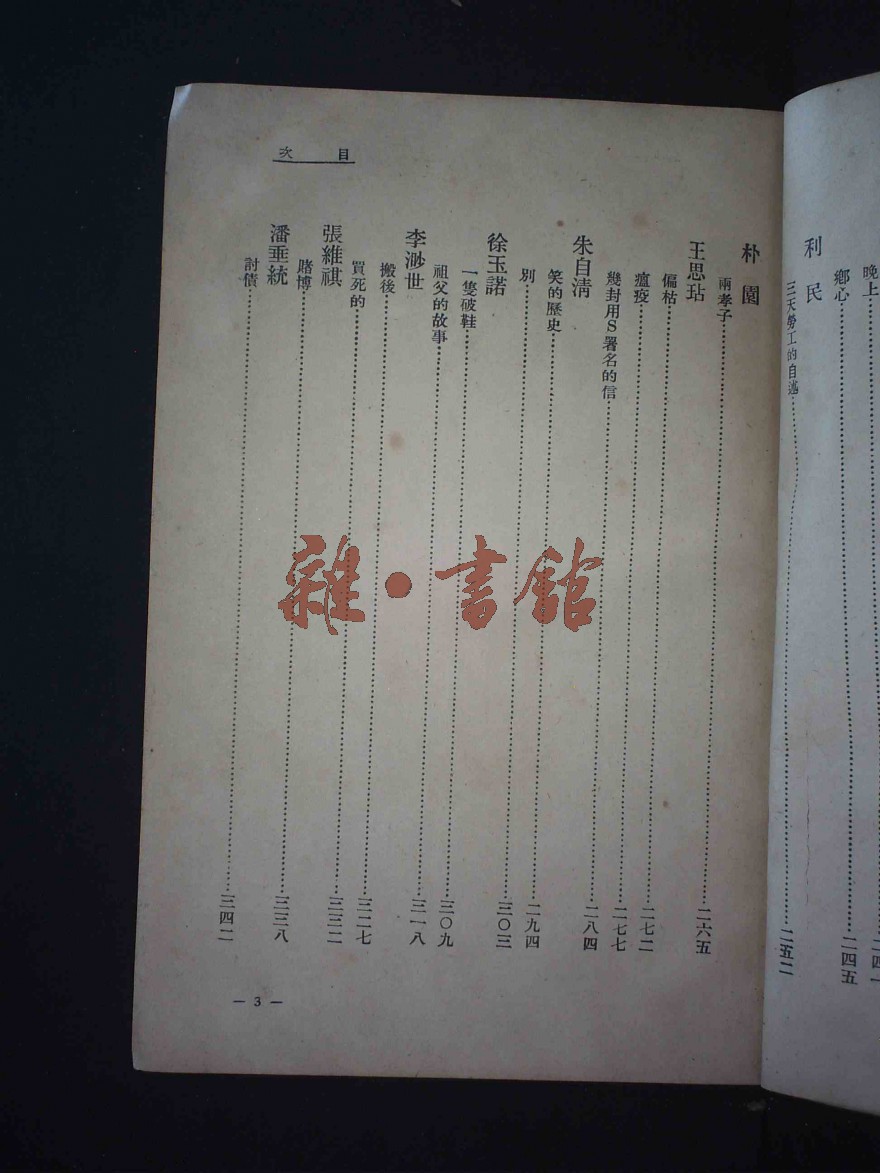 晚上
鄉心……二四五
利民
三天勞工的自述……二五二
目次
朴園
兩孝子……二六五
王思玷
偏枯……二七二
瘟疫……二七七
幾封用S署名的信……二八四
朱自清
笑的歷史……二九四
別……三〇三
徐玉諾
一隻破鞋……三〇九
祖父的故事……三一八
李渺世
搬後……三二七
買死的……三三二
張維祺
賭博……三三八
潘垂統
討債……三四二
— 3 —
雜·書館